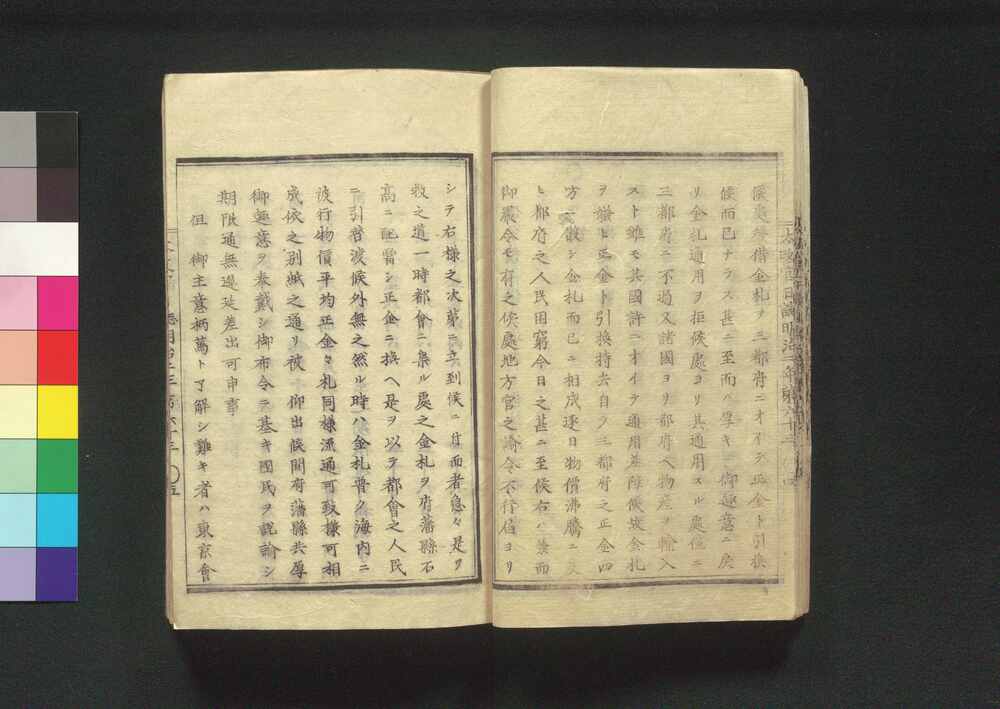 候處拜借金札ヲ三都府ニオイテ正金ト引換
候而已ナラス甚ニ至而ハ厚キ　御趣意ニ戻
リ金札通用ヲ拒候處ヨリ其通用スル處僅ニ
三都府ニ不過又諸國ヨリ都府ヘ物産ヲ輸入
スト雖モ其國許ニオイテ通用差障候故金札
ヲ嫌ヒ正金ト引換持去自ラ三都府之正金四
方ヘ散シ金札而已ニ相成逐日物價沸騰ニ及
ヒ都府之人民困窮今日之甚ニ至候右ハ兼而
御嚴令モ有之候處地方官之諭令不行届ヨリ
シテ右様之次第ニ立到候ニ付而者急々是ヲ
救之道一時都會ニ集ル處之金札ヲ府藩縣石
高ニ配當シ正金ニ換ヘ是ヲ以テ都會之人民
ニ引替渡候外無之然ル時ハ金札普ク海内ニ
流行物價平均正金々札同様流通可致様可相
成依之別紙之通リ被　仰出候間府藩縣共厚
御趣意ヲ奉戴シ御布令ニ基キ國民ヲ説諭シ
期限通無遅延差出可申事
但　御主意柄篤ト了解シ難キ者ハ東京會